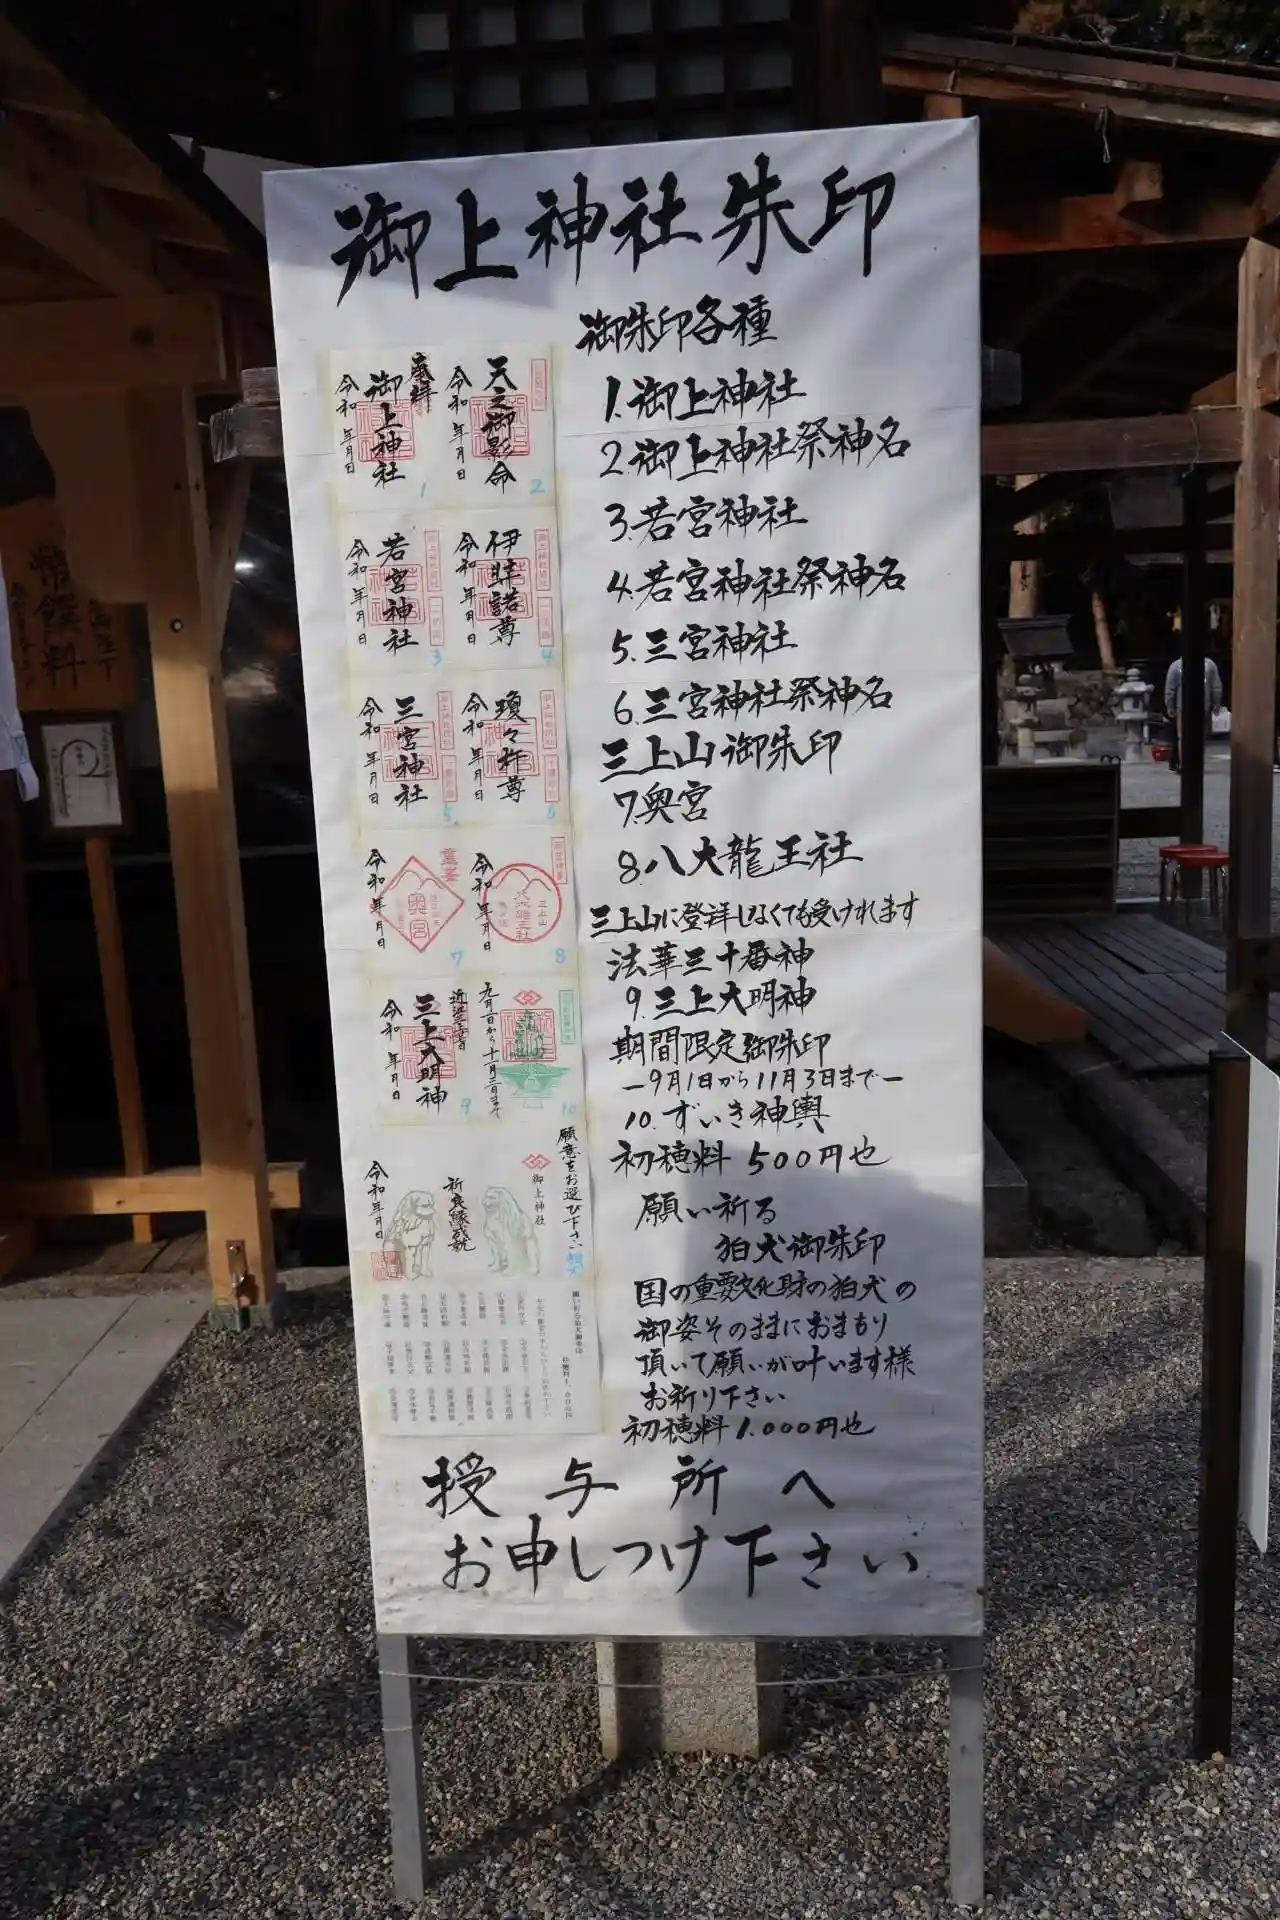 御上神社朱印
御朱印各種
1.御上神社
2.御上神社祭神名
3.若宮神社
4.若宮神社祭神名
5.三宮神社
6.三宮神社祭神名
三上山御朱印
7.奥宮
8.八大龍王社
三上山に登拝しなくても受けれます
法華三十番神
9.三上大明神
期間限定御朱印
ー9月1日から11月3日までー
10.ずいき神輿
初穂料 500円也
願い祈る
狛犬御朱印
国の重要文化財の狛犬の
御姿そのままにおまもり
頂いて願いが叶います様
お祈り下さい
初穂料 1.000円也
授与所へ
お申しつけ下さい
奉拝
御上神社
令和 年月日
1
天之御影命
令和 年月日
2
若宮神社
令和 年月日
3
伊弉諾尊
令和 年月日
4
三宮神社
令和 年月日
5
瓊々杵尊
令和 年月日
6
奥宮
令和 年月日
7
三上山
八大龍王社
令和 年月日
8
三上大明神
令和 年月日
9
九月一日から十一月三日まで
10
願意をお選び下さい
御上神社
祈良縁成就
令和 年月日
幣饌料